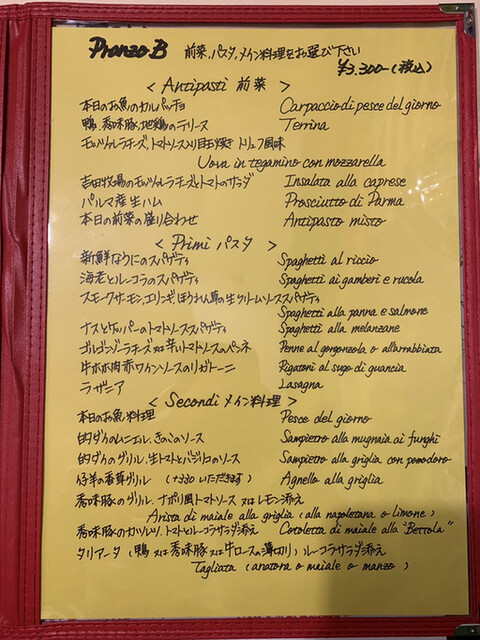 Pranzo B 前菜、パスタ、メイン料理をお選び下さい
¥3,300-(税込)
< Antipasti 前菜 >
本日のお魚のカルパッチョ Carpaccio di pesce del giorno
鴨、香味豚、地鶏のテリーヌ Terrina
モッツァレラチーズ、トマトソース入り目玉焼き トリュフ風味
Uova in tegamino con mozzarella
吉田牧場のモッツァレラチーズとトマトのサラダ Insalata alla caprese
パルマ産生ハム Prosciutto di Parma
本日の前菜の盛り合わせ Antipasto misto
< Primi パスタ >
新鮮なうにのスパゲティ Spaghetti al riccio
海老とルーコラのスパゲティ Spaghetti ai gamberi e rucola
スモークサーモン、エリンギ、ほうれん草の生クリームソーススパゲティ
Spaghetti alla panna e salmone
ナスとケッパーのトマトソーススパゲティ Spaghetti alla melanzane
ゴルゴンゾーラチーズ又は辛いトマトソースのペンネ Penne al gorgonzola o all'arrabbiata
牛ホホ肉赤ワインソースのリガトーニ Rigatoni al sugo di guancia
ラザニア Lasagna
< Secondi メイン料理 >
本日のお魚料理 Pesce del giorno
的ダイのムニエル、きのこのソース Sampietro alla mugnaia ai funghi
的ダイのグリル、生トマトとバジリコのソース Sampietro alla griglia con pomodoro
仔羊の香草グリル (+330いただきます) Agnello alla griglia
香味豚のグリル、ナポリ風トマトソース又はレモン添え
Arista di maiale alla griglia (alla napoletana o limone)
香味豚のカツレツ、トマトとルーコラサラダ添え Cotoletta di maiale alla "Bettola"
タリアータ (鴨又は香味豚又は牛ロースの薄切り) ルーコラサラダ添え
Tagliata (anatra o maiale o manzo)